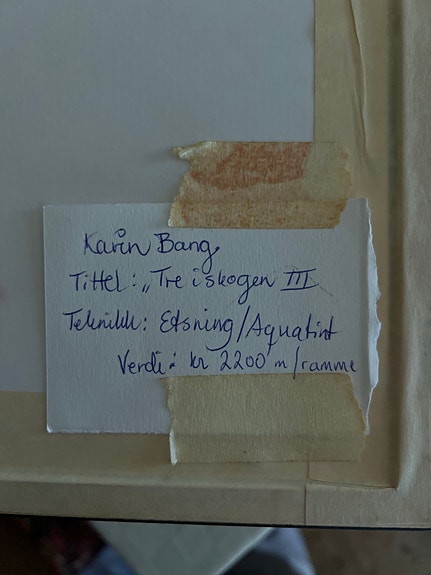 Karin Bang
Tittel: „Tre i skogen III
Teknikk: Etsning/Aquatint
Verdi: kr 2200 m/ramme